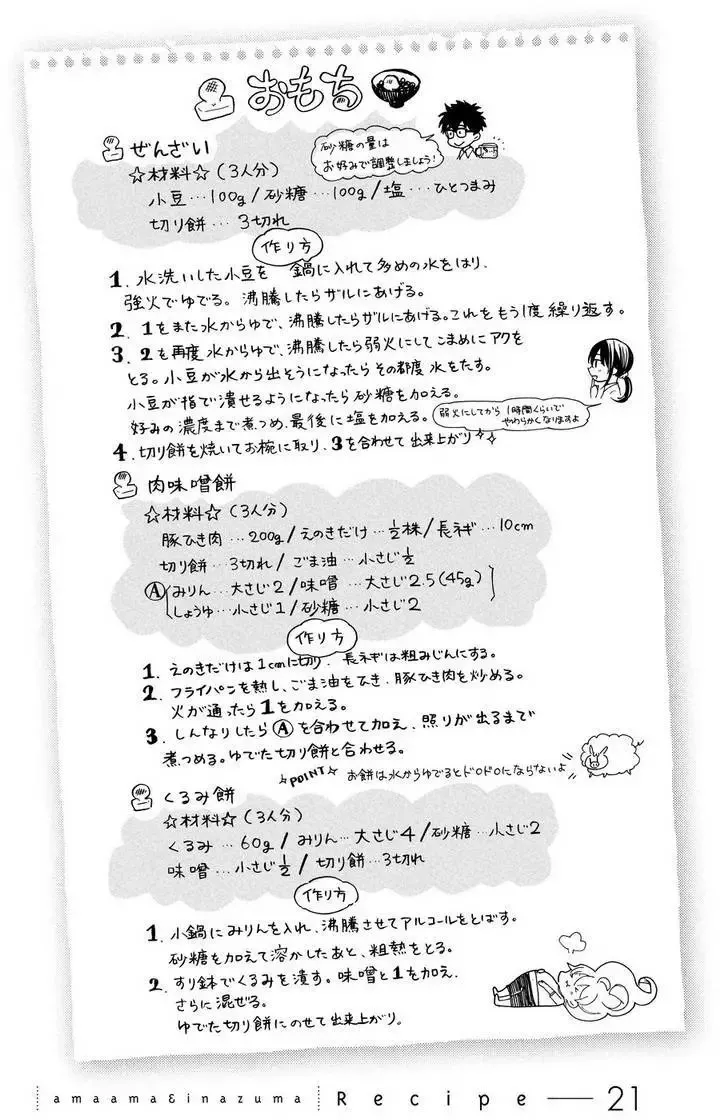 おもち
ぜんざい
砂糖の量は
お好みで調整しましょう!
☆材料☆(3人分)
小豆…100g/砂糖…100g/塩…ひとつまみ
切り餅…3切れ
作り方
1. 水洗いした小豆を 鍋に入れて多めの水をはり、
強火でゆでる。沸騰したらザルにあげる。
2. 1をまた水からゆで、沸騰したらザルにあげる。これをもう1度繰り返す。
3. 2を再度水からゆで、沸騰したら弱火にしてこまめにアクを
とる。小豆が水から出そうになったらその都度水をたす。
小豆が指で潰せるようになったら砂糖を加える。
好みの濃度まで煮つめ、最後に塩を加える。
弱火にしてから1時間くらいで
やわらかくなりますよ
4. 切り餅を焼いてお椀に取り、3を合わせて出来上がり
肉味噌餅
☆材料☆(3人分)
豚ひき肉…200g/えのきだけ…½株/長ネギ…10cm
切り餅…3切れ/ごま油…小さじ½
Ⓐ みりん…大さじ2/味噌…大さじ2.5(45g)
しょうゆ…小さじ1/砂糖…小さじ2
作り方
1. えのきだけは1cmに切り、長ネギは粗みじんにする。
2. フライパンを熱し、ごま油をひき、豚ひき肉を炒める。
火が通ったら1を加える。
3. しんなりしたらⒶを合わせて加え、照りが出るまで
煮つめる。ゆでた切り餅と合わせる。
POINT お餅は水からゆでるとドロドロにならないよ
くるみ餅
☆材料☆(3人分)
くるみ…60g/みりん…大さじ4/砂糖…小さじ2
味噌…小さじ½/切り餅…3切れ
作り方
1. 小鍋にみりんを入れ、沸騰させてアルコールをとばす。
砂糖を加えて溶かしたあと、粗熱をとる。
2. すり鉢でくるみを潰す。味噌と1を加え、
さらに混ぜる。
ゆでた切り餅にのせて出来上がり。
amaama&inazuma Recipe — 21